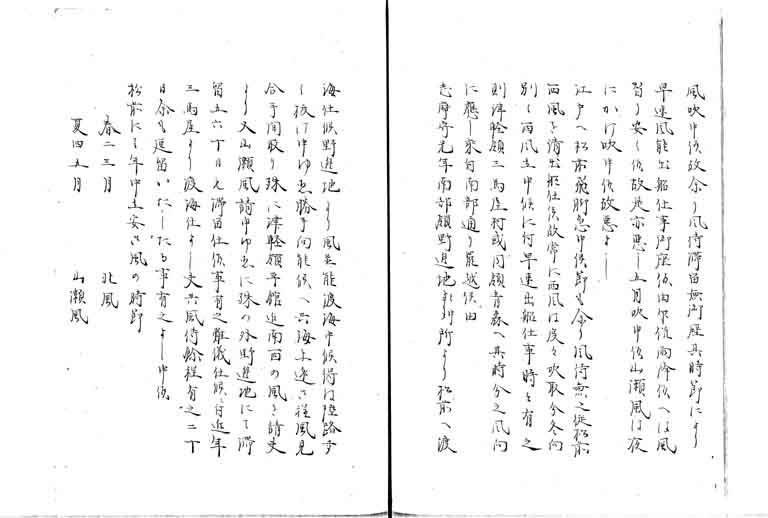 風吹申候故余り風待滞留無御座其時節により
早速風能出船仕事御座候由尓候雨降候へは風
習ひ安く候故是亦悪し五月吹申候山瀬風は夜
にかけ吹申候故悪よし
江戸へ松前飛脚急申候節も余り風待無之従松前
西風を請出船仕候故常に西風は度々吹取分冬向
別て西風立申候に付早速出船仕事時々有之
則津軽領三馬屋村或同領青森へ其時分之風向
に應し乗向南部通り罷越候由
南部領野辺地より松前へ渡
海仕候野辺地より風並能渡海申候得は陸路歩
し抜け申ゆゑ勝手向能候へ共海上遠く程風見
合手間取り殊に津軽領平舘迄南西の風を請夫
より又山瀬風請申ゆゑに殊の外野辺地にて滞
留五六十日も滞留仕候事有之難儀仕候に付近年
三馬屋より渡海仕よし尤其風待餘程有之二十
日余も逗留いたしたる事有之よし申候
松前にて年中立安き風の時節
春二三月 北風
夏四五月 山瀬風